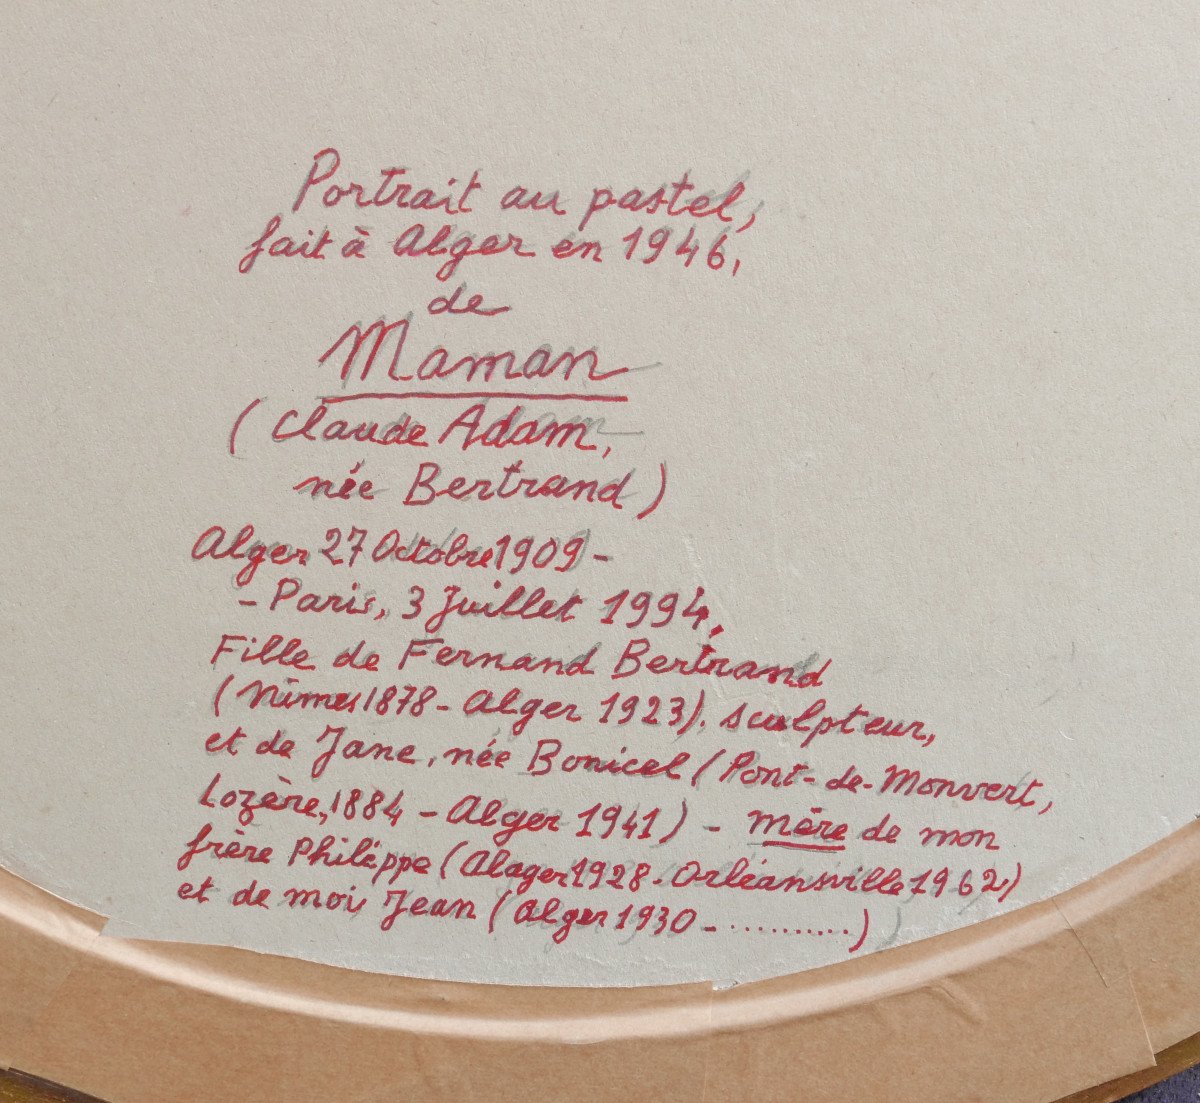 Portrait au pastel,
fait à Alger en 1946,
de
Maman
(Claude Adam,
née Bertrand)
Alger 27 Octobre 1909 -
- Paris, 3 Juillet 1994.
Fille de Fernand Bertrand
(Nîmes 1878 - Alger 1923), sculpteur,
et de Jane, née Bonicel (Pont-de-Monvert,
Lozère, 1884 - Alger 1941) - mère de mon
frère Philippe (Alager 1928 - Orléansville 1962)
et de moi Jean (Alger 1930 - ..........)